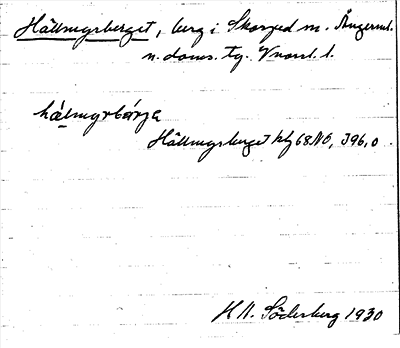 Hällmyrsberget, berg i Skorped sn. Ångerml.
n. doms. tg. Vnorrl. l.
hä́lmyrbǽrjɐ
Hällmyrsberget kbl 68 NO, 396,0
H N. Söderberg 1930